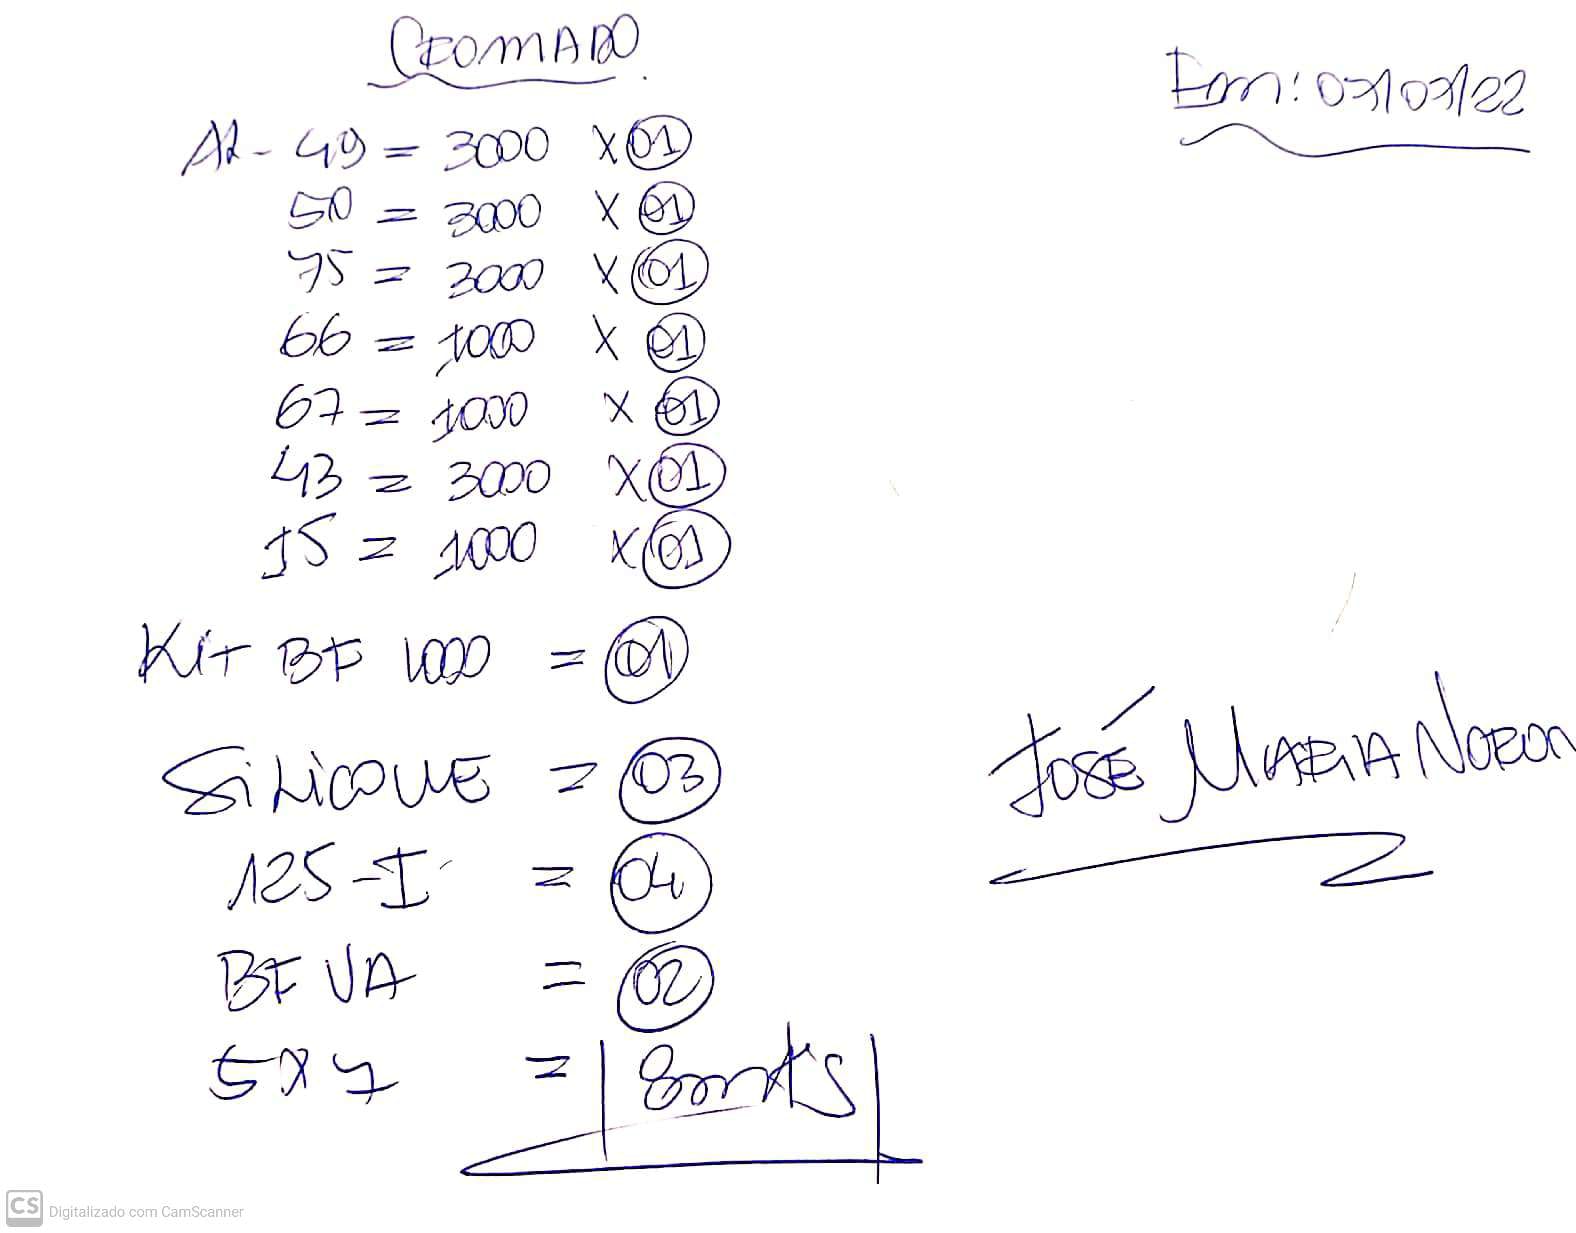 CROMADO.
Em: 07/07/22
AL - 49 = 3000 X 01
50 = 3000 X 01
75 = 3000 X 01
66 = 1000 X 01
67 = 1000 X 01
43 = 3000 X 01
15 = 1000 X 01
KIT BF 1000 = 01
SILICONE = 03
JOSÉ MARIA NORON
125 - I = 04
BF VA = 02
5X7 = 8mts
CS Digitalizado com CamScanner